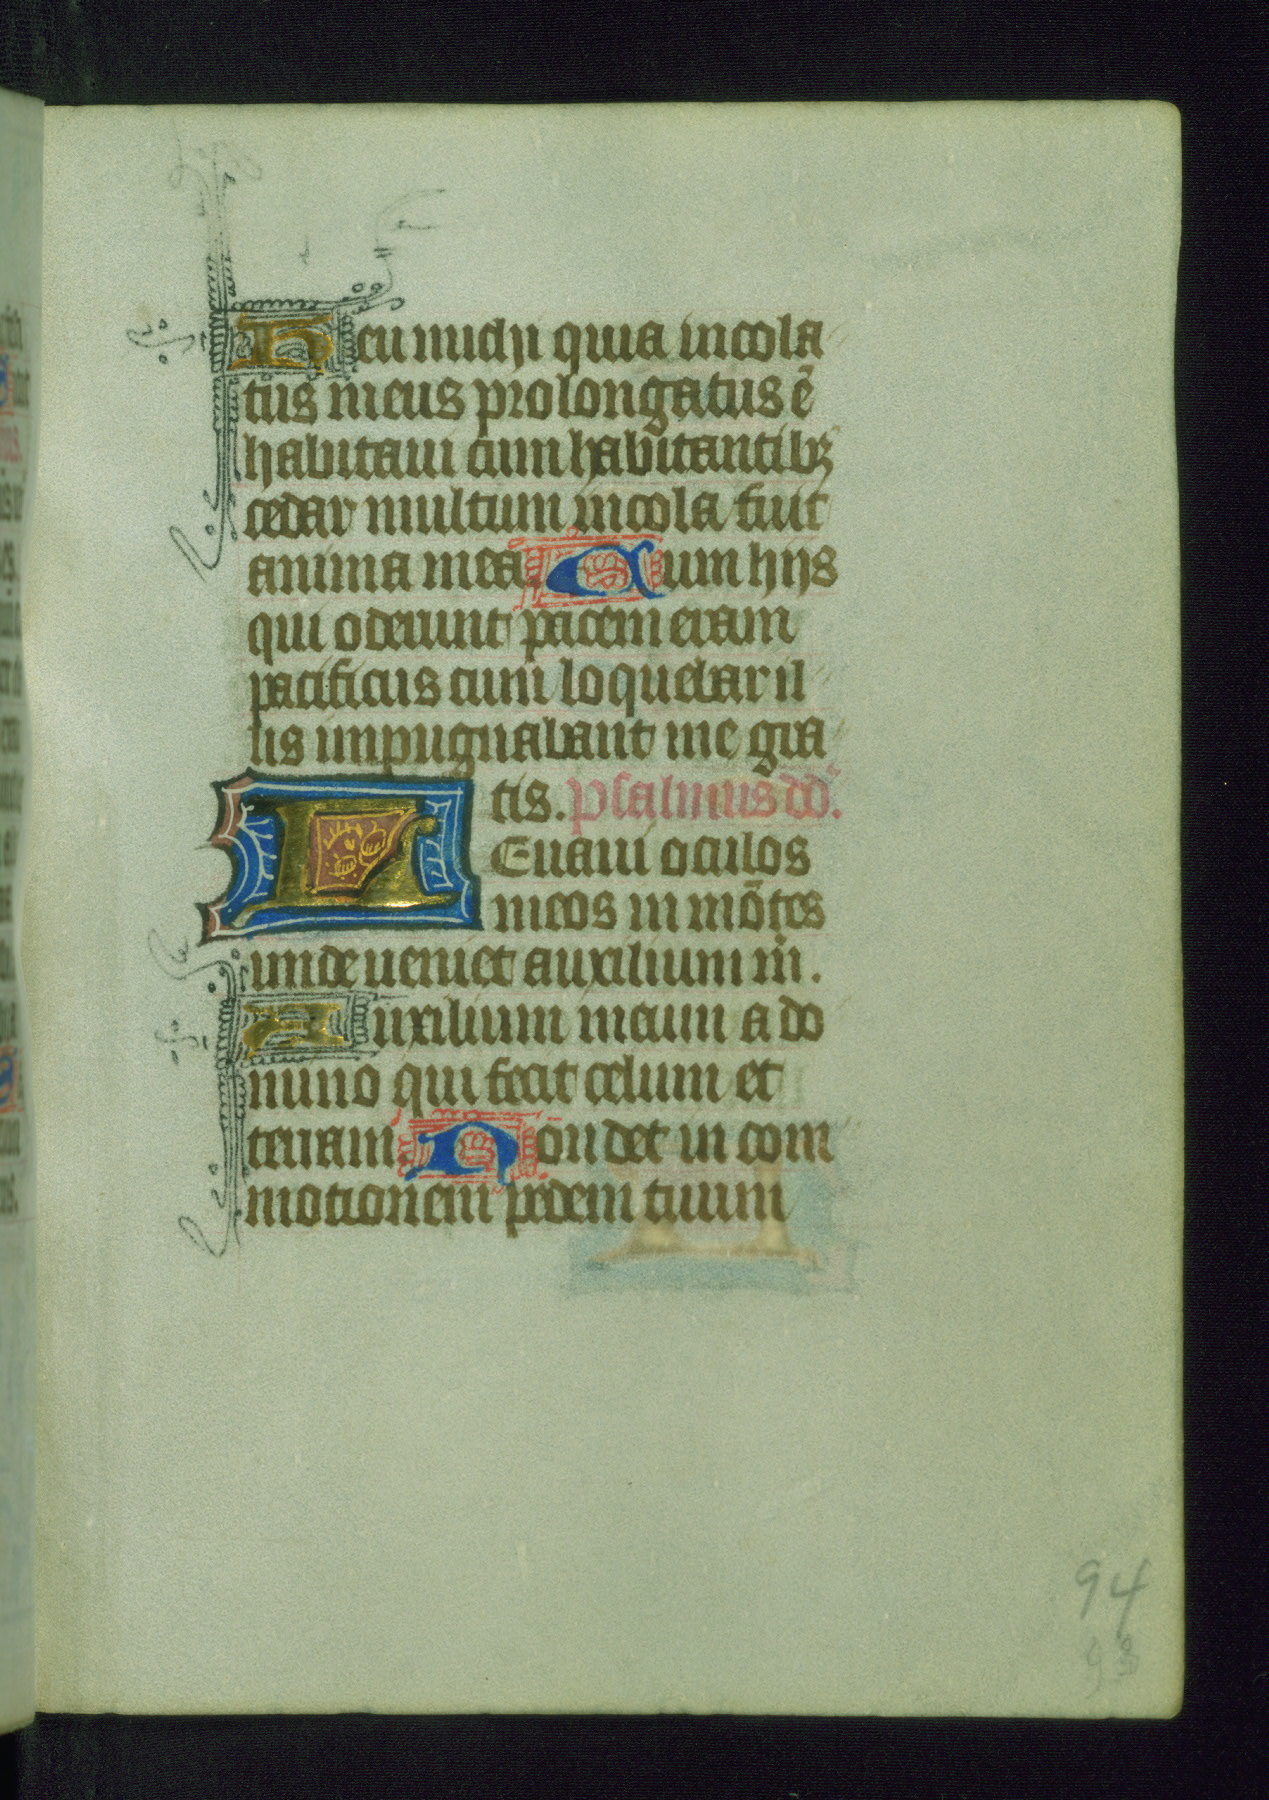 Heu michi quia incola
tus meus prolongatus ē
habitaui cum habitantibꝫ
cedar multum incola fuit
anima mea. Cum hijs
qui oderunt pacem eram
pacificus cum loquebar il
lis impugnabant me gra
tis. Psalmus dd̄.
LEuaui oculos
meos in mōtes
unde ueniet auxilium m̄.
Auxilium meum a do
mino qui fecit celum et
terram. Non det in com
motionem pedem tuum
94
93